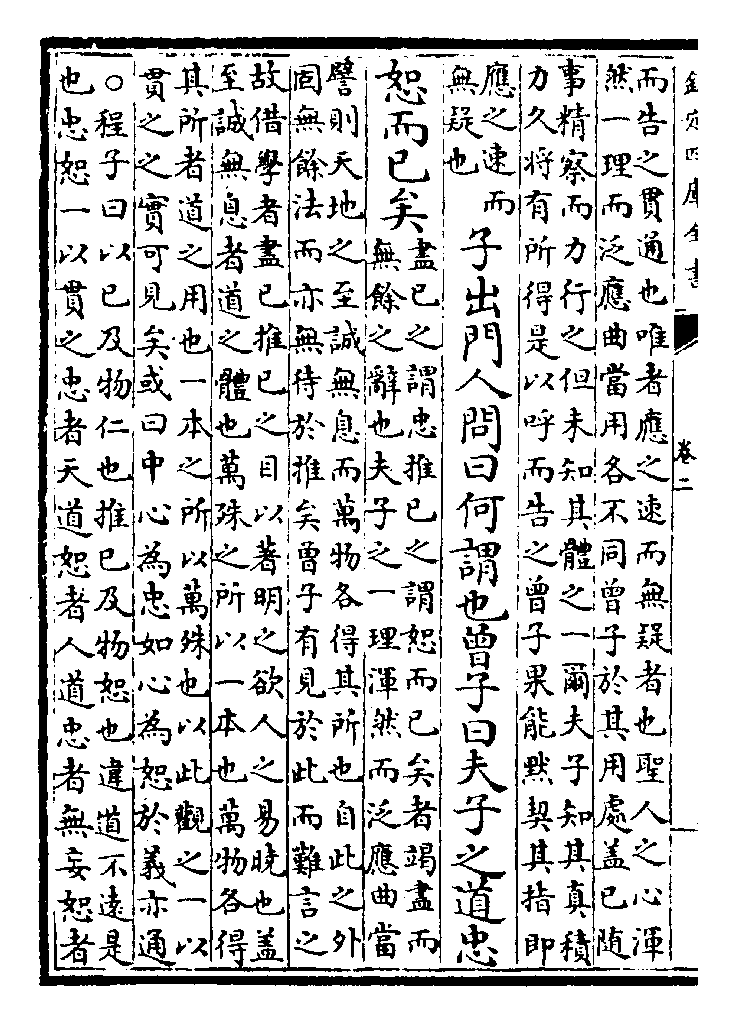 欽定四庫全書 卷二
而告之貫通也唯者應之速而無疑者也聖人之心渾
然一理而泛應曲當用各不同曾子於其用處盖已随
事精察而力行之但未知其體之一爾夫子知其真積
力久將有所得是以呼而告之曾子果能黙契其指即
應之速而
無疑也
子出門人問曰何謂也曾子曰夫子之道忠
恕而已矣
盡已之謂忠推已之謂恕而已矣者竭盡而
無餘之辭也夫子之一理渾然而泛應曲當
譬則天地之至誠無息而萬物各得其所也自此之外
固無餘法而亦無待於推矣曾子有見於此而難言之
故借學者盡已推已之目以著明之欲人之易曉也盖
至誠無息者道之體也萬殊之所以一本也萬物各得
其所者道之用也一本之所以萬殊也以此觀之一以
貫之之實可見矣或曰中心為忠如心為恕於義亦通
○程子曰以已及物仁也推已及物恕也違道不逺是
也忠恕一以貫之忠者天道恕者人道忠者無妄恕者